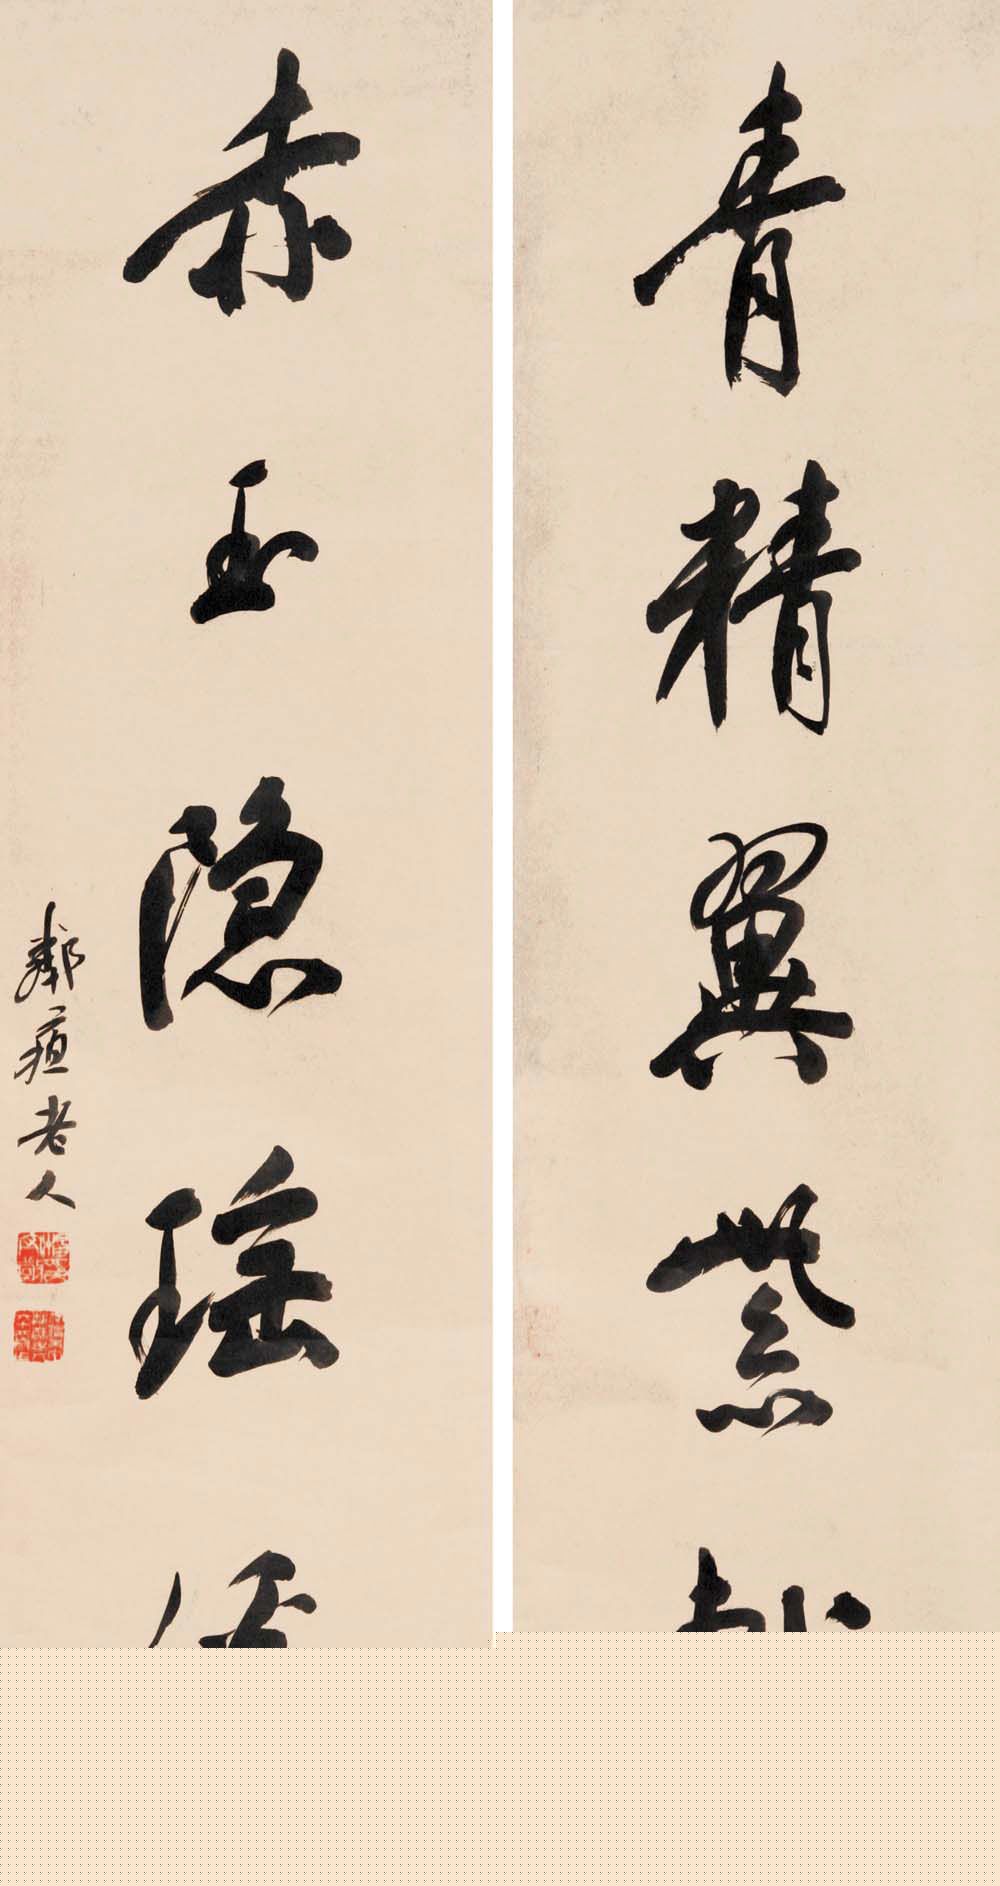 青精翼紫
赤玉隐瑶
鄰蘇老人